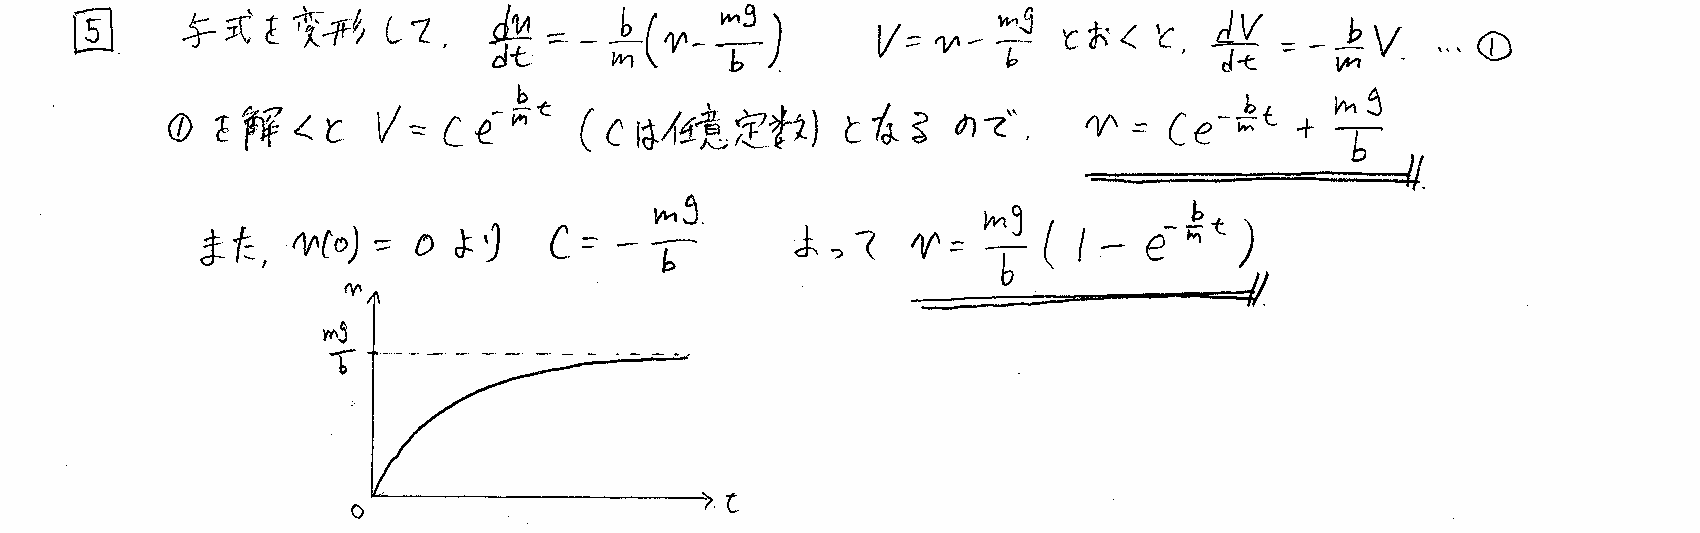 5 与式を変形して、 dv/dt = -b/m (v - mg/b) V = v - mg/b とおくと、 dV/dt = -b/m V. … ①
① を解くと V = Ce^{-b/m t} (Cは任意定数) となるので、 v = Ce^{-b/m t} + mg/b
また, v(0) = 0 より C = -mg/b よって v = mg/b (1 - e^{-b/m t})
v
mg/b
0 t